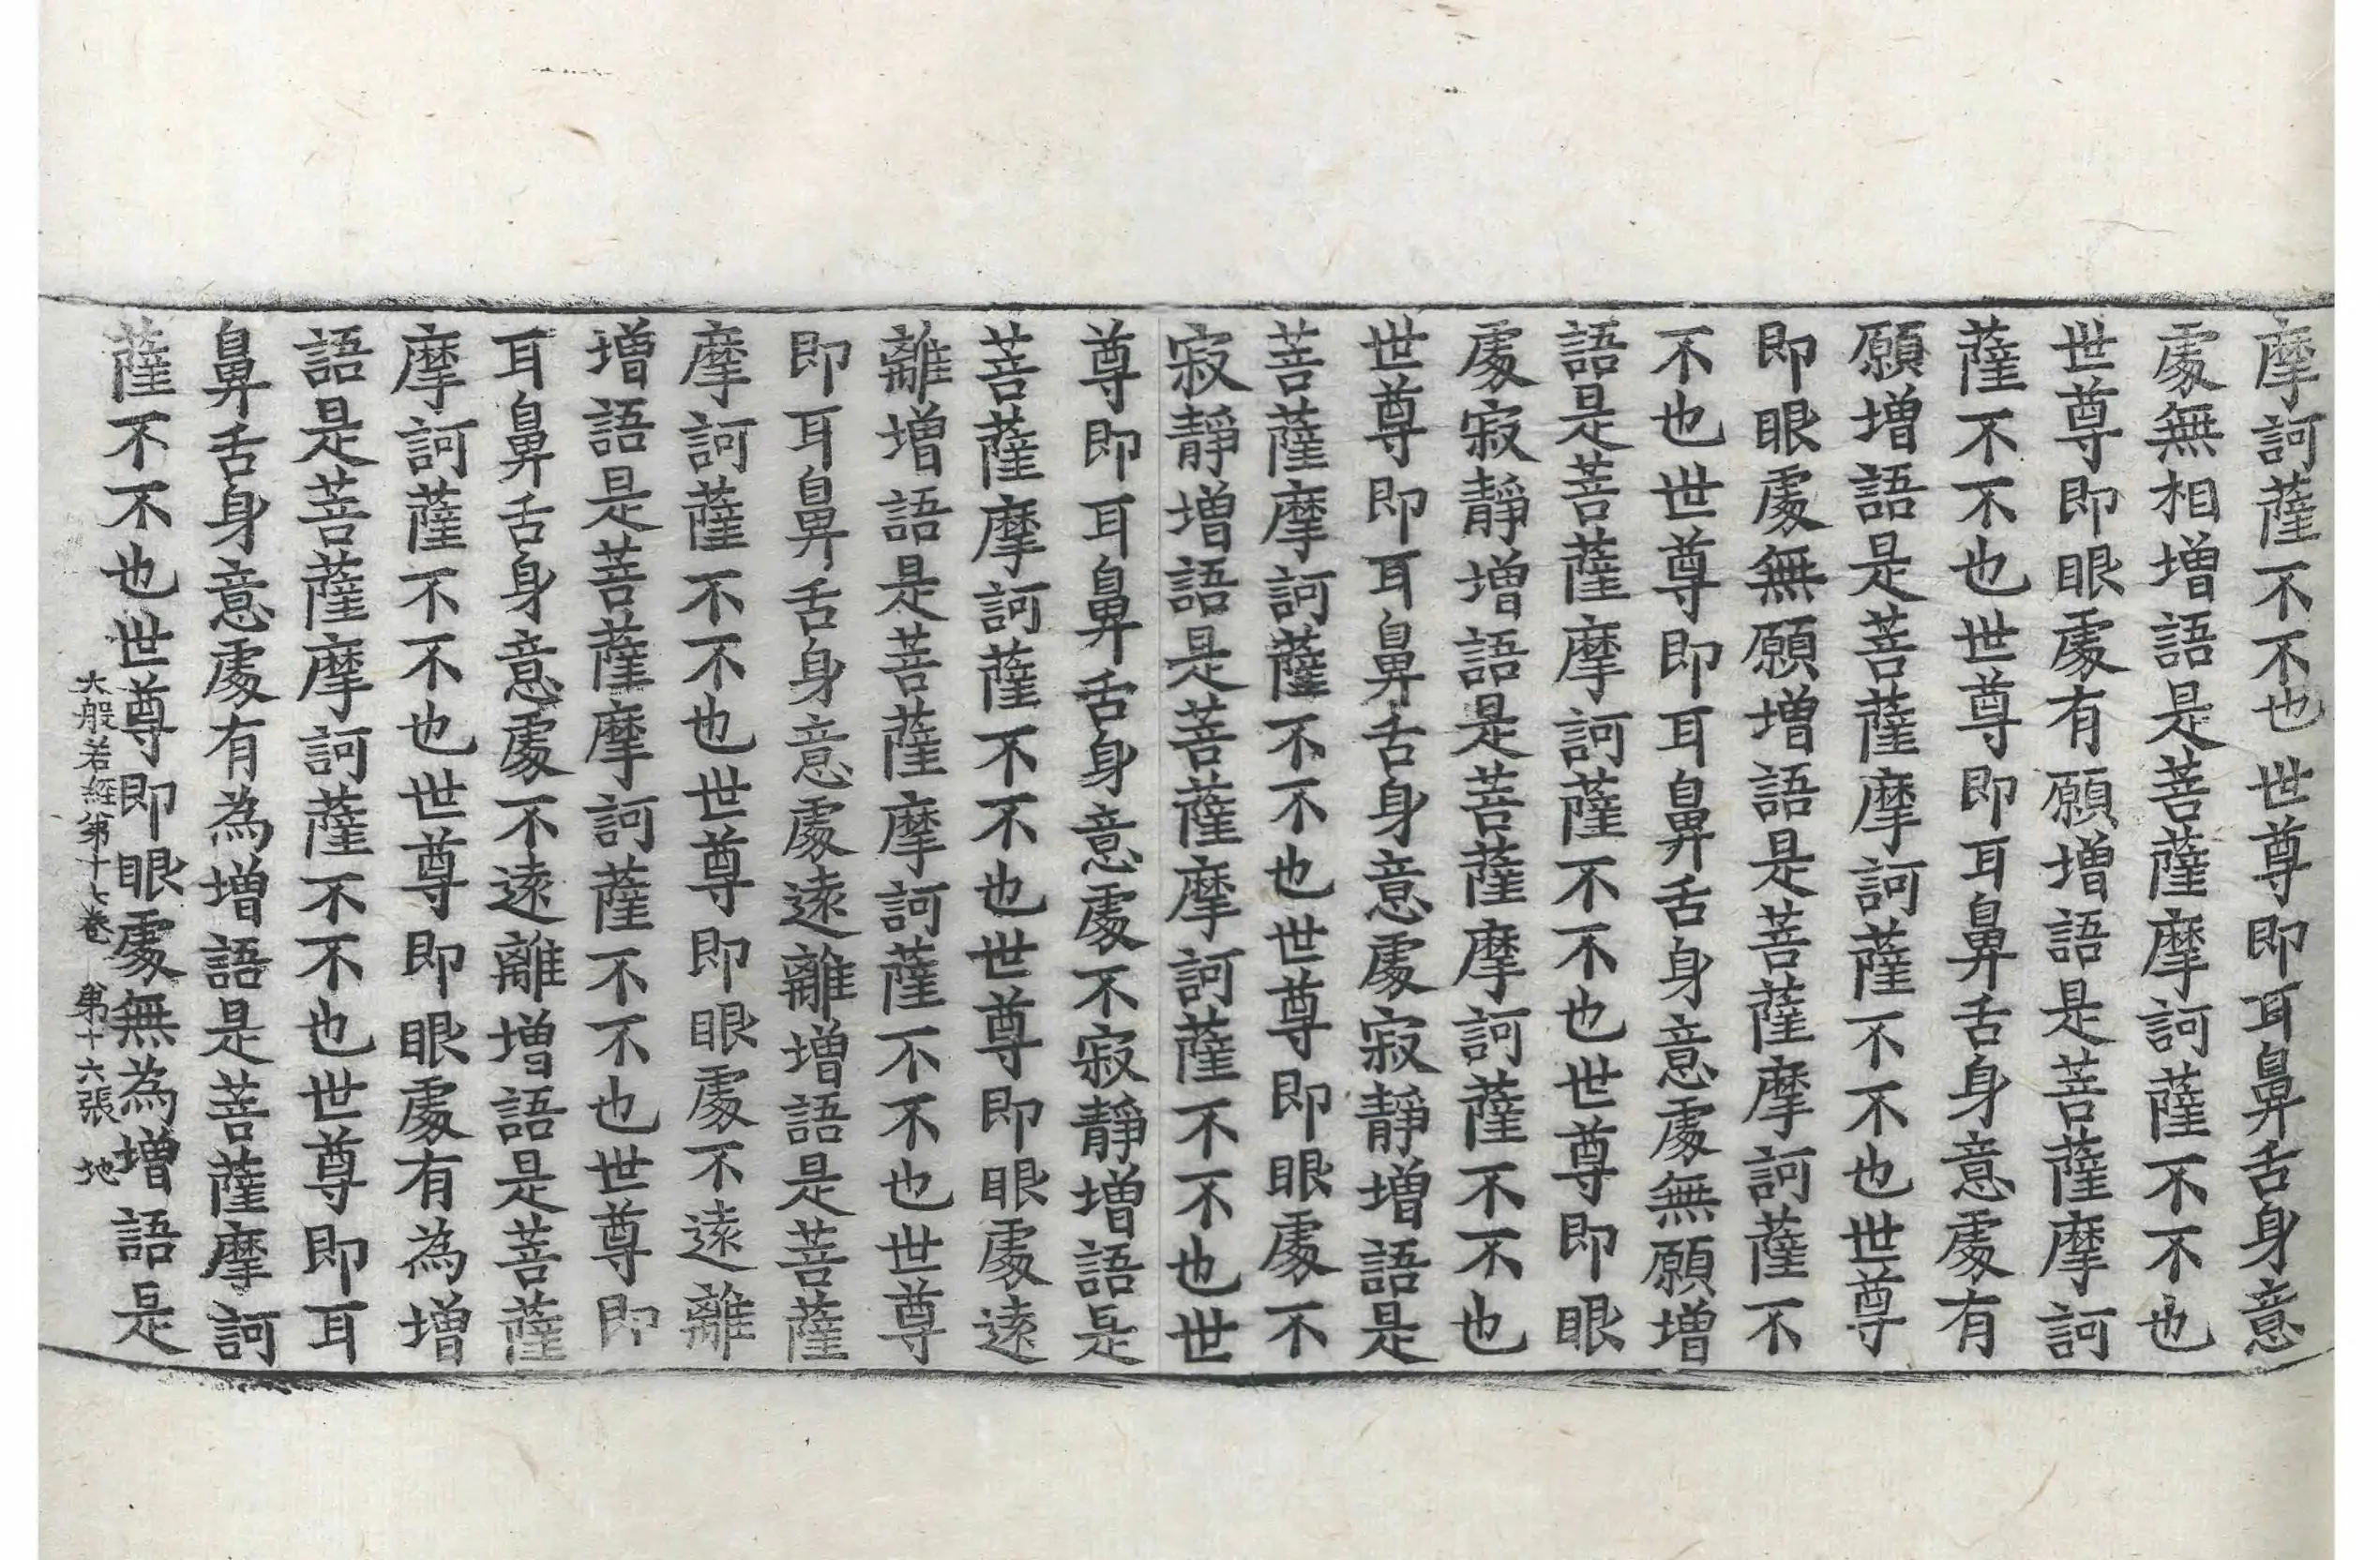 摩訶薩不不也世尊即耳鼻舌身意
處無相增語是菩薩摩訶薩不不也
世尊即眼處有願增語是菩薩摩訶
薩不不也世尊即耳鼻舌身意處有
願增語是菩薩摩訶薩不不也世尊
即眼處無願增語是菩薩摩訶薩不
不也世尊即耳鼻舌身意處無願增
語是菩薩摩訶薩不不也世尊即眼
處寂靜增語是菩薩摩訶薩不不也
世尊即耳鼻舌身意處寂靜增語是
菩薩摩訶薩不不也世尊即眼處不
寂靜增語是菩薩摩訶薩不不也世
尊即耳鼻舌身意處不寂靜增語是
菩薩摩訶薩不不也世尊即眼處遠
離增語是菩薩摩訶薩不不也世尊
即耳鼻舌身意處遠離增語是菩薩
摩訶薩不不也世尊即眼處不遠離
增語是菩薩摩訶薩不不也世尊即
耳鼻舌身意處不遠離增語是菩薩
摩訶薩不不也世尊即眼處有為增
語是菩薩摩訶薩不不也世尊即耳
鼻舌身意處有為增語是菩薩摩訶
薩不不也世尊即眼處無為增語是
大般若經第十七卷 第十六張 地